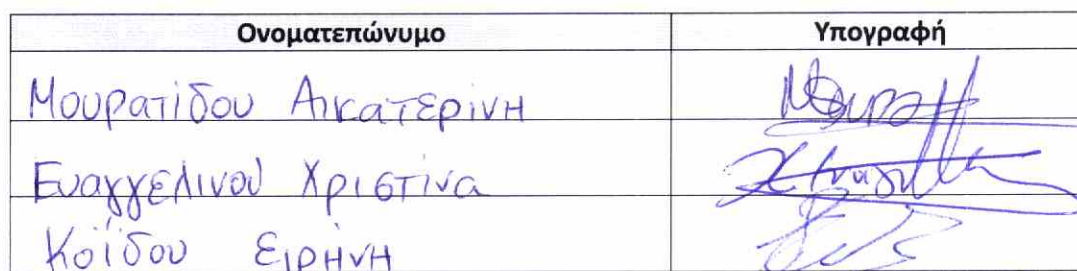 Ονοματεπώνυμο Υπογραφή
Μουρατίδου Αικατερίνη
Ευαγγελινού Χριστίνα
Κοΐδου Ειρήνη